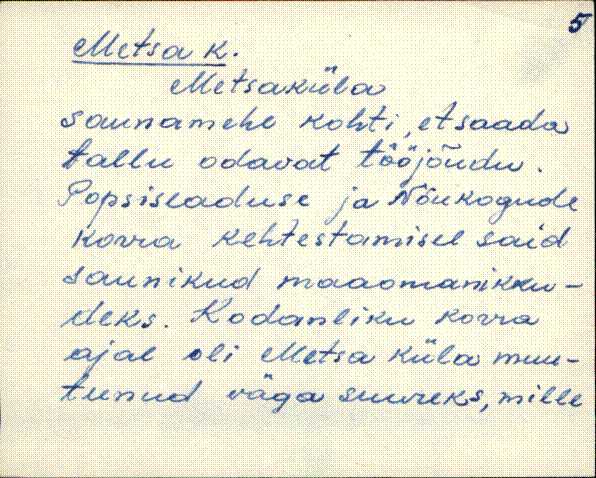 5
Metsa k.
Metsaküla
saunamehe kohti, et saada
tallu odavat tööjõudu.
Popsiseaduse ja Nõukogude
korra kehtestamisel said
saunikud maaomaniku-
deks. Kodanliku korra
ajal oli Metsa küla muu-
tunud väga suureks, mille